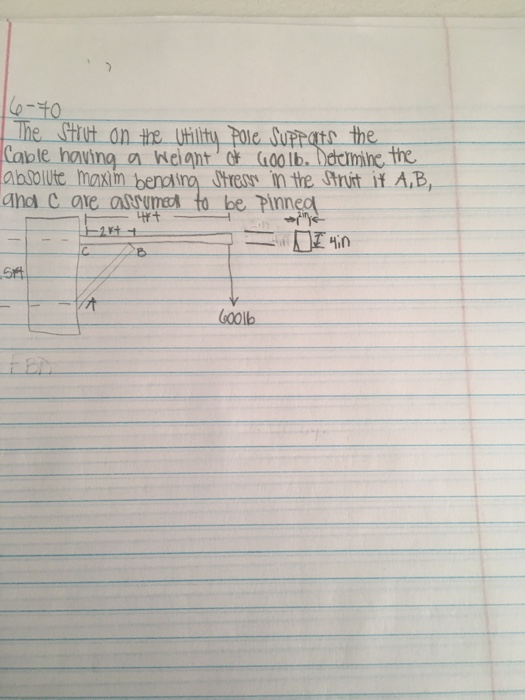 6-70
The Strut on the utility Pole Supports the
Cable having a weight of 600 lb. Determine the
absolute maxim bending Stress in the Strut if A,B,
and C are assumed to be Pinned
4ft
2in
2ft
4in
C
B
5ft
A
600lb
FBD